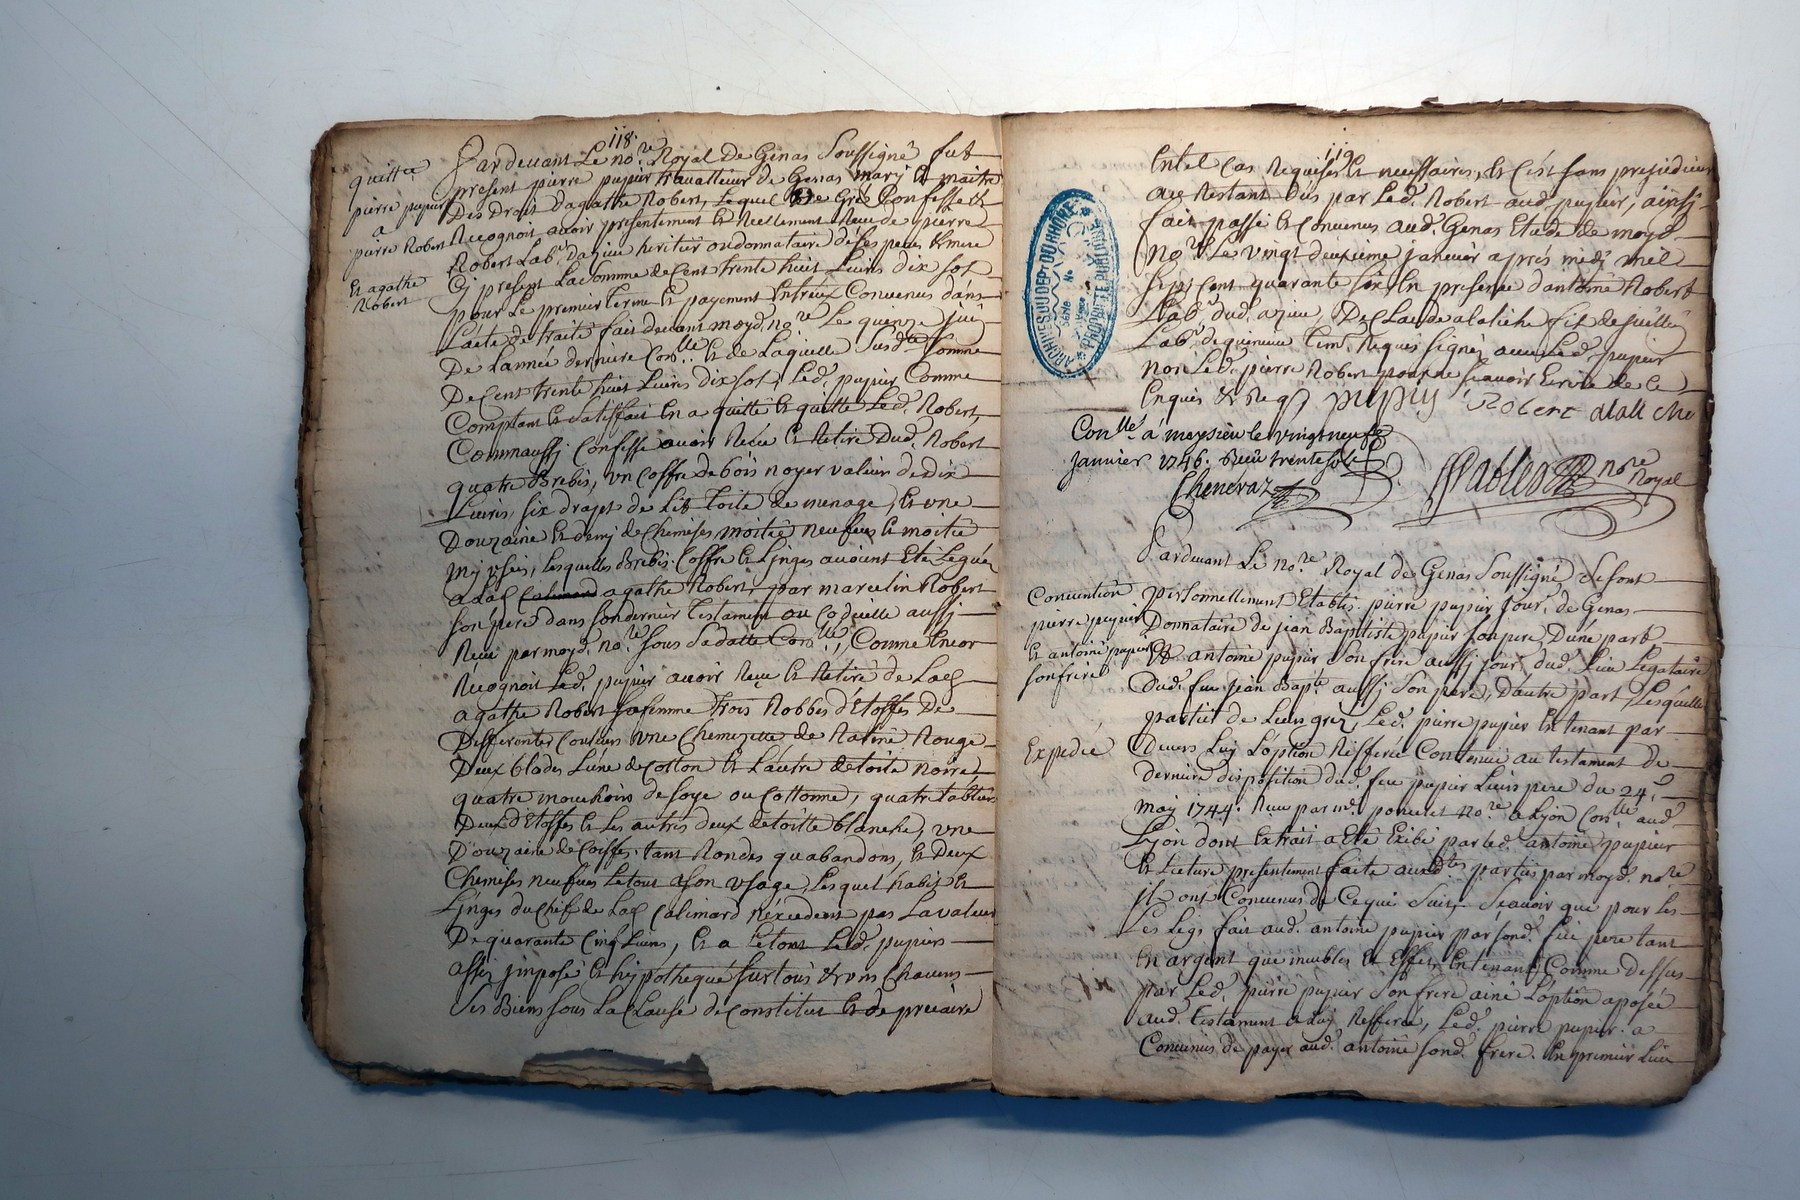 118.
quitt.ce
pierre pupier
a
pierre Robert
Et agathe
Robert
Pardevant Le no.re Royal De Genas Soussigné fut
present pierre pupier travailleur de Genas mary Et maitre
Des Droit d'agathe Robert, Lequel De Gré Confesse Et
Recognoit avoir presentement Et Reellement Receu de pierre
Robert Lab.r d'azieu heritier ou donnataire de ses peres Et mere
Cy present La somme de Cent trente huit Livres dix sol
pour Le premier terme Et payement Entreux Convenus dans
L'acte de traité fait devant moyd. no.re Le quenze juin
De L'année derniere Con.lle Et de Laquelle Susd.te Somme
De Cent trente huit Livres dix sol, Led. pupier Comme
Comptant Et Satisfait En a quitté Et quitte Led. Robert
Comm'aussj Confesse avoir Receu Et Retiré Dud. Robert
quatre Brebis, un Coffre de bois noyer valeur de dix
Livres, six draps de Lit toile de menage, Et une
Douzaine Et demj de Chemises moitié neufves Et moitié
mj usées, Lesquelles Brebis Coffre Et Linges avoient Eté Legués
a Lad. agathe Robert, par marcelin Robert
son pere dans son dernier testament ou Codicille aussj
Receu par moyd. no.re sous sa datte Con.lle, Comme Encor
Recognoit Led. pupier avoir Receu Et Retiré de Lad.
agathe Robert sa femme trois Robbes d'Etoffes De
Differentes Couleurs une Chemizette de Ratine Rouge
Deux blodes L'une de Cotton Et L'autre de toile noire,
quatre mouchoirs de soye ou Cottonne, quatre tabliers
Deux d'Etoffes Et Les autres deux de toille blanche, une
Douzaine de Coiffes tant Rondes qu'abandons, Et Deux
Chemises neufves Le tout a son usage, Lesquel habit Et
Linges du Chef de Lad. Calimard n'éxcedent pas La valeur
De quarante Cinq Livres, Et a Le tout Led. pupier
assis jmposé Et hypothequé sur tous Et uns Chacuns
Ses Biens sous La Clause de Constitut Et de precaire
119
En tel Cas Requises Et necessaires, Et C'est sans prejudice
au Restant Dus par Led. Robert aud. pupier, ainsj
fait passé Et Convenus aud. Genas Etude de moyd.
No.re Le vingt deuxieme janvier aprés midj mil
sept Cent quarante six En presence d'antoine Robert
Lab.r dud. azieu, De Claude alatiche fils de
Lab.r de quincieu tém. Requis signés avec Led. pupier
non Led. pierre Robert pour ne sçavoir Ecrire de Ce
Enquis & Req. pupiy Robert alatiche
Con.llé á meysieu le vingt neuf
Janvier 1746. Receu trente sols
Cheneraz
Sablon no.re Royal
ARCHIVES DU DEPT DU RHÔNE
PROPRIÉTÉ PUBLIQUE
Convention
pierre pupier
Et antoine pupier
son frere
Expedié
Pardevant Le no.re Royal de Genas Soussigné Se sont
personnellement Etablis pierre pupier jour. de Genas
Donnataire de jean Baptiste pupier son pere, D'une part
Et antoine pupier son frere aussj jour. dud. Lieu Legataire
Dud. feu jean Bap.te aussj son pere, D'autre part Lesquelles
parties de Leurs grez, Led. pierre pupier En tenant par
Devers Luy L'option Refferée Contenuë au testament de
derniere disposition dud. feu pupier Leurs pere du 24.e
may 1744. Receu par m.e poncelet no.re a Lyon Con.llé aud.
Lyon dont Extrait a Eté Exibé par led. antoine pupier
Et Lecture presentement faite aux d.tes parties par moyd. no.re
jls ont Convenus de Ce qui Suit Scavoir que pour Les
Les Legs fait aud. antoine pupier par sond. feu pere tant
En argent que meubles Et Effets Entenant Comme dessus
par Led. pierre pupier son frere ainé L'option aposée
aud. testament a Luy Refferée, Led. pierre pupier a
Convenus de payer aud. antoine sond. frere. En premier Lieu